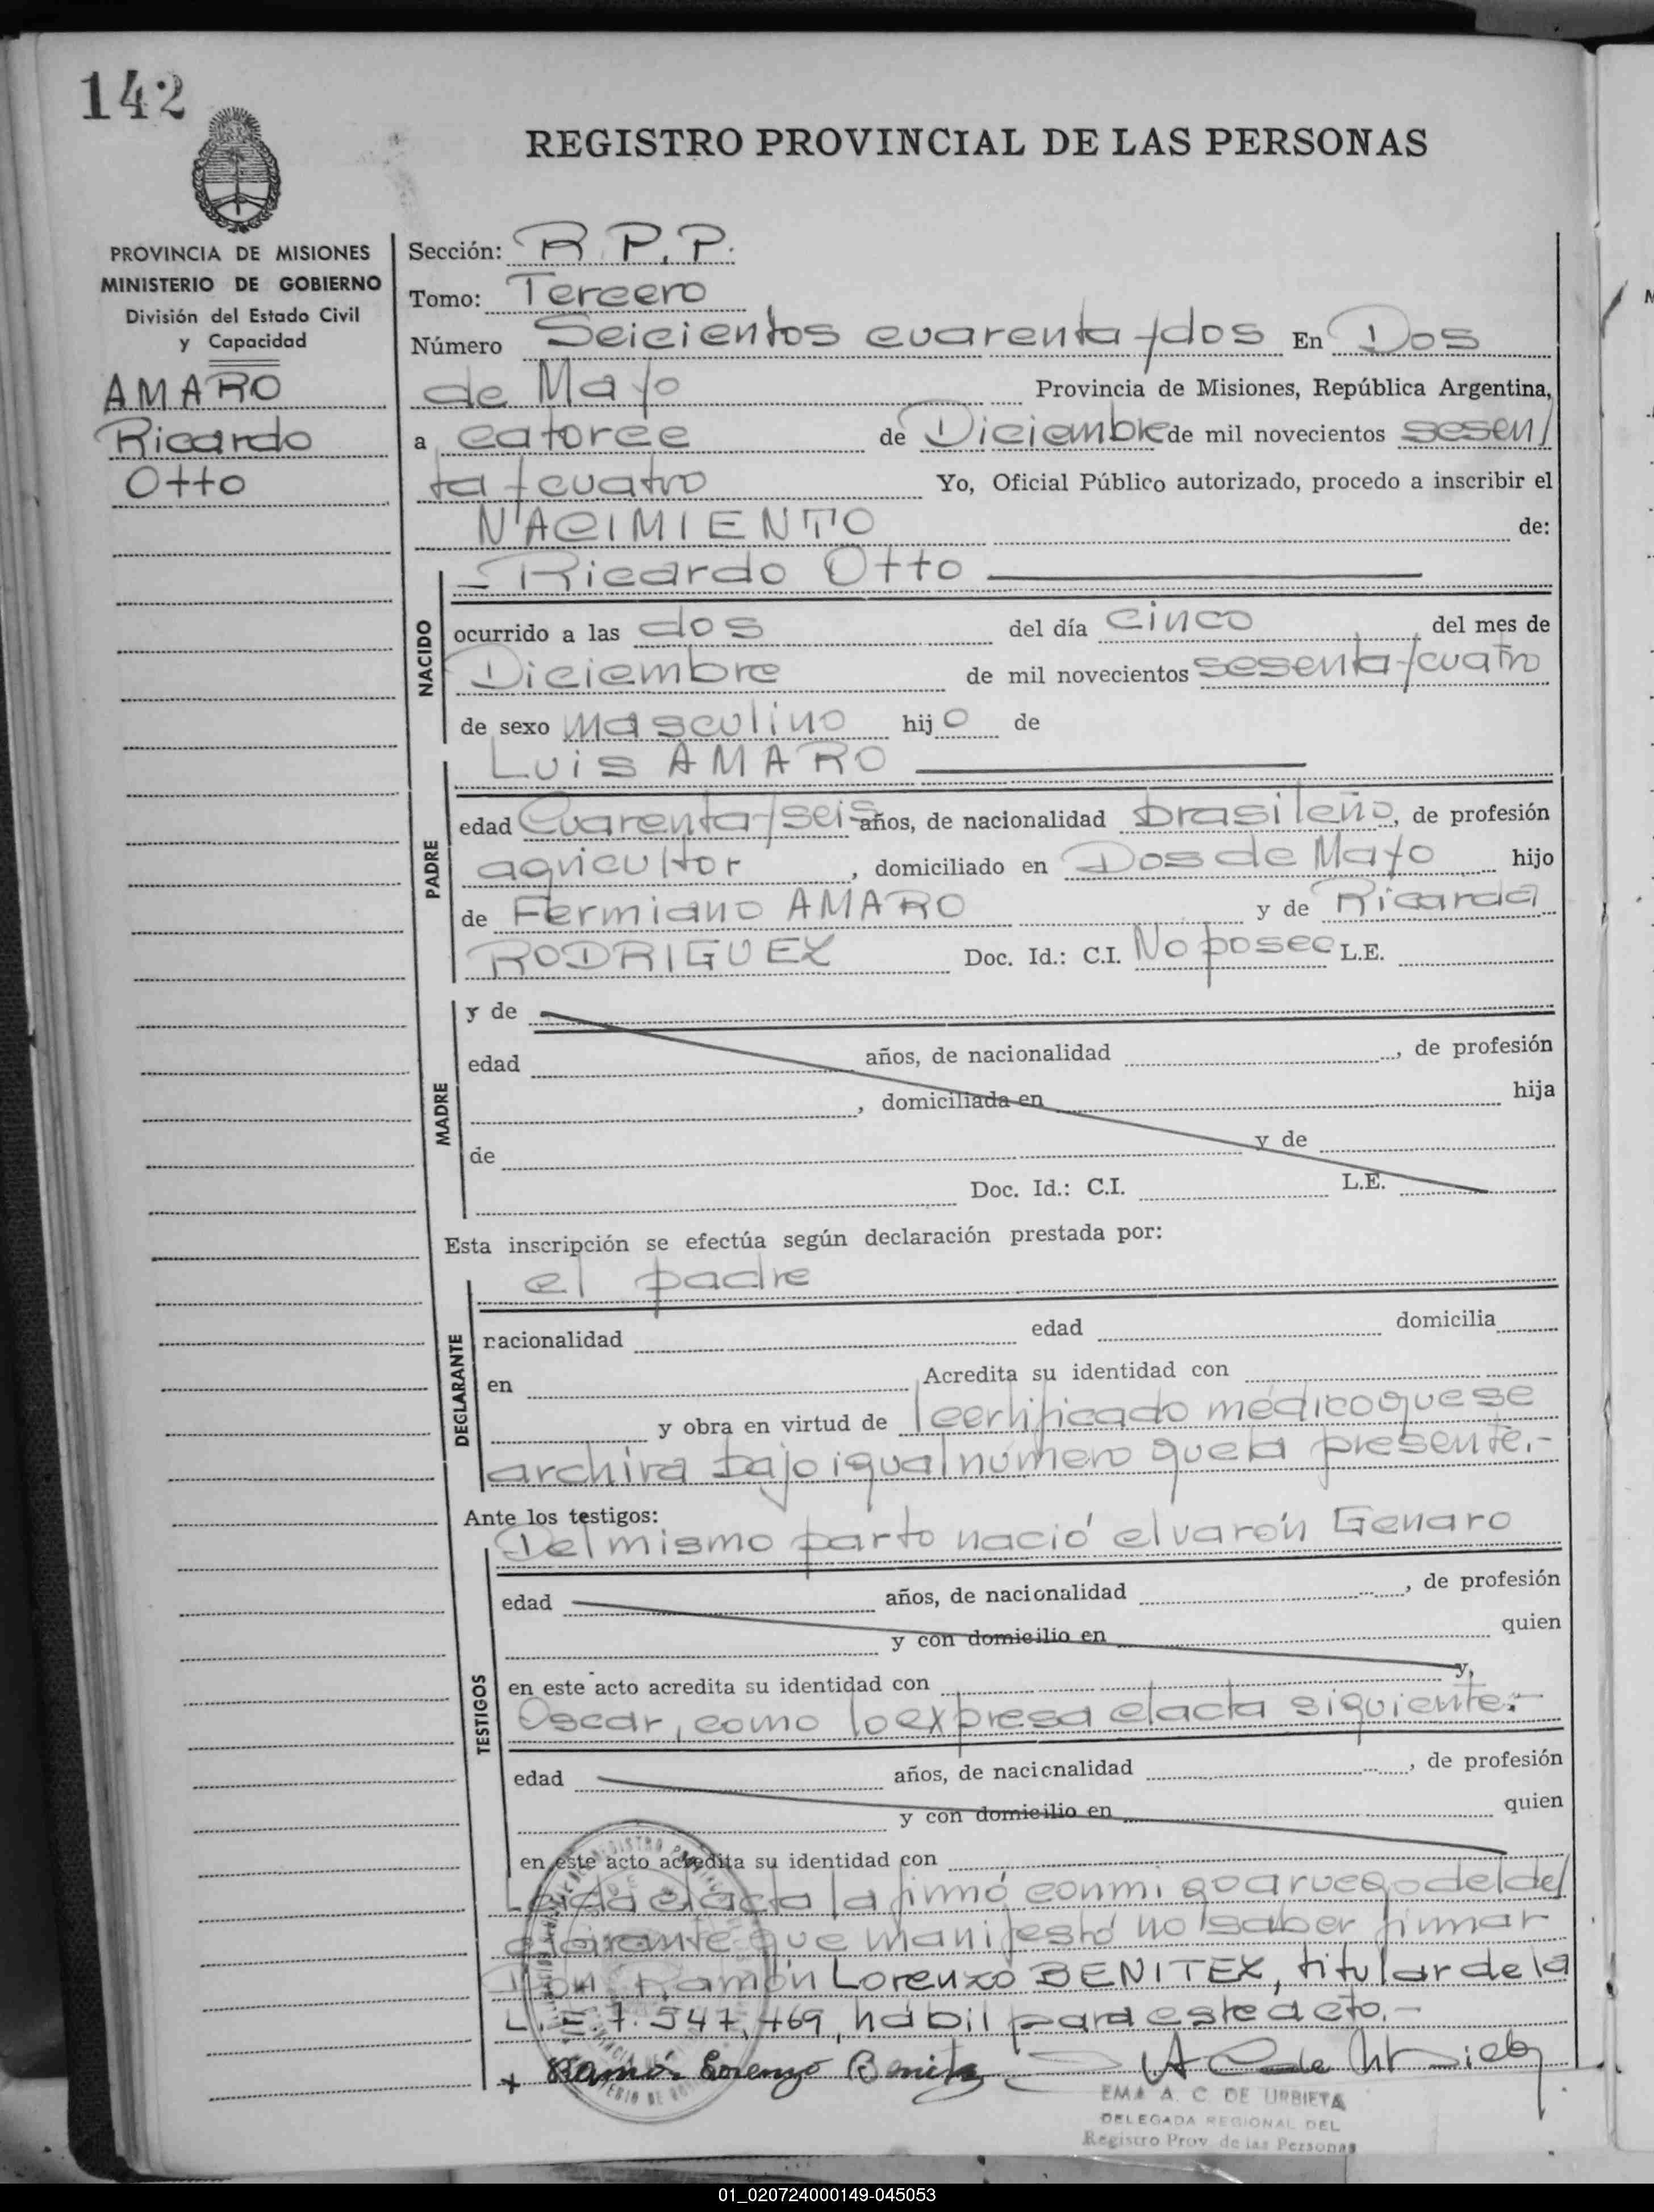 142
REGISTRO PROVINCIAL DE LAS PERSONAS
PROVINCIA DE MISIONES
MINISTERIO DE GOBIERNO
División del Estado Civil
y Capacidad
AMARO
Ricardo
Otto
Sección: R.P.P.
Tomo: Tercero
Número Seicientos cuarenta y dos En Dos
de Mayo Provincia de Misiones, República Argentina,
a catorce de Diciembre de mil novecientos sesen/
ta y cuatro Yo, Oficial Público autorizado, procedo a inscribir el
NACIMIENTO de:
- Ricardo Otto
NACIDO
ocurrido a las dos del día cinco del mes de
Diciembre de mil novecientos sesenta y cuatro
de sexo masculino hijo de
Luis AMARO
PADRE
edad Cuarenta y seis años, de nacionalidad brasileño, de profesión
agricultor, domiciliado en Dos de Mayo hijo
de Fermiano AMARO y de Ricarda
RODRIGUEZ Doc. Id.: C.I. No posee L.E.
MADRE
y de
edad años, de nacionalidad , de profesión
, domiciliada en hija
de y de
Doc. Id.: C.I. L.E.
Esta inscripción se efectúa según declaración prestada por:
el padre
DECLARANTE
nacionalidad edad domicilia
en Acredita su identidad con
y obra en virtud de certificado médico que se
archiva bajo igual número que la presente.-
Ante los testigos:
Del mismo parto nació el varón Genaro
TESTIGOS
edad años, de nacionalidad , de profesión
y con domicilio en quien
en este acto acredita su identidad con y,
Oscar, como lo expresa el acta siguiente.-
edad años, de nacionalidad , de profesión
y con domicilio en quien
en este acto acredita su identidad con
Leida el acta la firmó conmigo a ruego del de/
clarante que manifestó no saber firmar
Don Ramón Lorenzo BENITEZ, titular de la
L.E. 7.547.469, hábil para este acto.-
+ Ramón Lorenzo Benitez
EMA A. C. DE URBIETA
DELEGADA REGIONAL DEL
Registro Prov. de las Personas
01_020724000149-045053